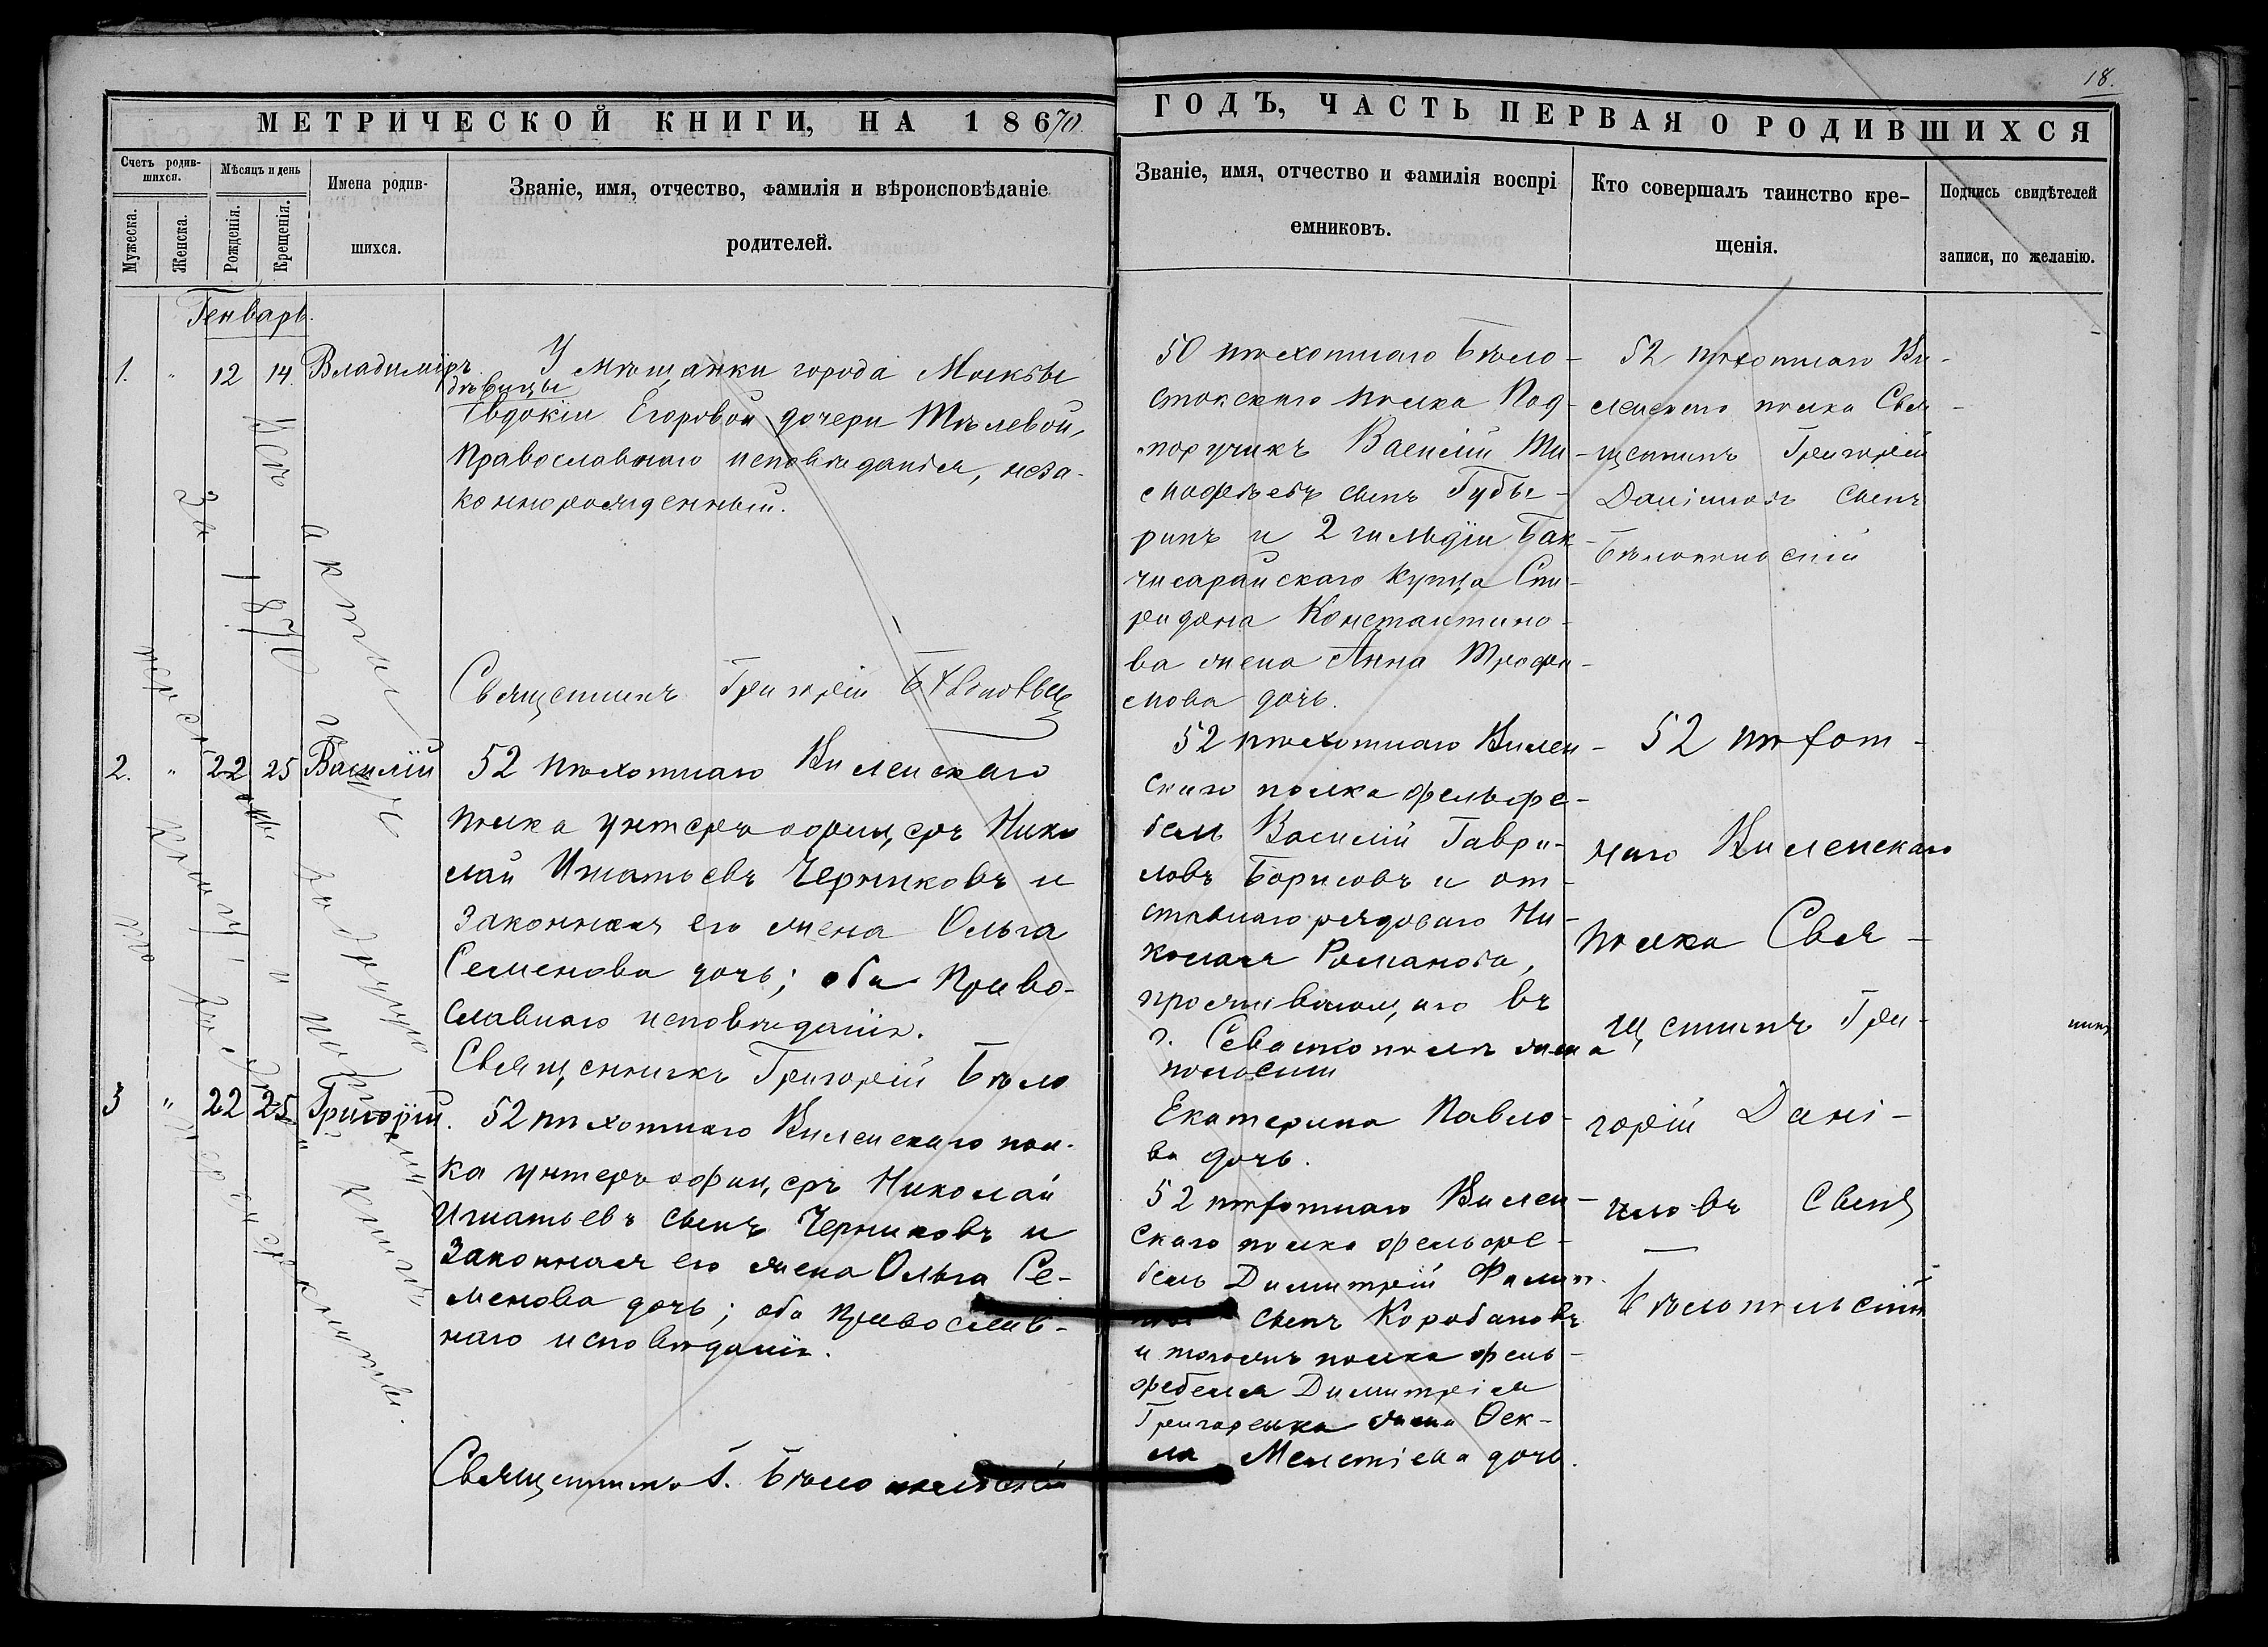 18.
МЕТРИЧЕСКОЙ КНИГИ, НА 1870
ГОДЪ, ЧАСТЬ ПЕРВАЯ О РОДИВШИХСЯ
Счетъ родив-
шихся.
Мужеска.
Женска.
Мѣсяцъ и день
Рожденія.
Крещенія.
Имена родив-
шихся.
Званіе, имя, отчество, фамилія и вѣроисповѣданіе
родителей.
Званіе, имя, отчество и фамилія воспрі
емниковъ.
Кто совершалъ таинство кре-
щенія.
Подпись свидѣтелей
записи, по желанію.
Генварь.
1. " 12 14. Владиміръ.
У мѣщанки города Москвы
дѣвицы
Евдокіи Егоровой дочери Тѣлевой,
Православнаго исповѣданія, неза-
коннорожденный.
Священникъ Григорій
50 пѣхотнаго Бѣло-
стокскаго полка Под-
поручикъ Василій Ти-
мофѣевъ сынъ Губы-
ринъ и 2 гильдіи Бак-
чисарайскаго купца Спи-
ридона Константино-
ва жена Анна Трофи-
мова дочь.
52 пѣхотнаго Ви-
ленскаго полка Свя-
щенникъ Григорій
Даніиловъ сынъ
Бѣлопольскій
2. " 22 25 Василій
52 пѣхотнаго Виленскаго
полка унтеръ офицеръ Нико
лай Игнатьевъ Черниковъ и
законная его жена Ольга
Семенова дочь; оба Право-
славнаго исповѣданія.
Священникъ Григорій Бѣло
52 пѣхотнаго Вилен-
скаго полка фельдфе-
бель Василій Гаври-
ловъ Борисовъ и от-
ставнаго рядоваго Ни-
колая Романова,
проживающаго въ
г. Севастополѣ жена
Екатерина Павло-
ва дочь.
52 пѣхот-
наго Виленскаго
полка Свя-
щенникъ Гри-
горій Дані-
иловъ сынъ
Бѣлопольскій
3 " 22 25 Григорій.
52 пѣхотнаго Виленскаго пол-
ка унтеръ офицеръ Николай
Игнатьевъ сынъ Черниковъ и
законная его жена Ольга Се-
менова дочь; оба Православ-
наго исповѣданія.
Священникъ Г. Бѣлопольскій
52 пѣхотнаго Вилен-
скаго полка фельдфе-
бель Димитрій Филип-
повъ сынъ Коробановъ
и тогожъ полка фель-
дфебеля Димитрія
Григоренка жена Ѳек-
ла Мелетіева дочь.
За 1870